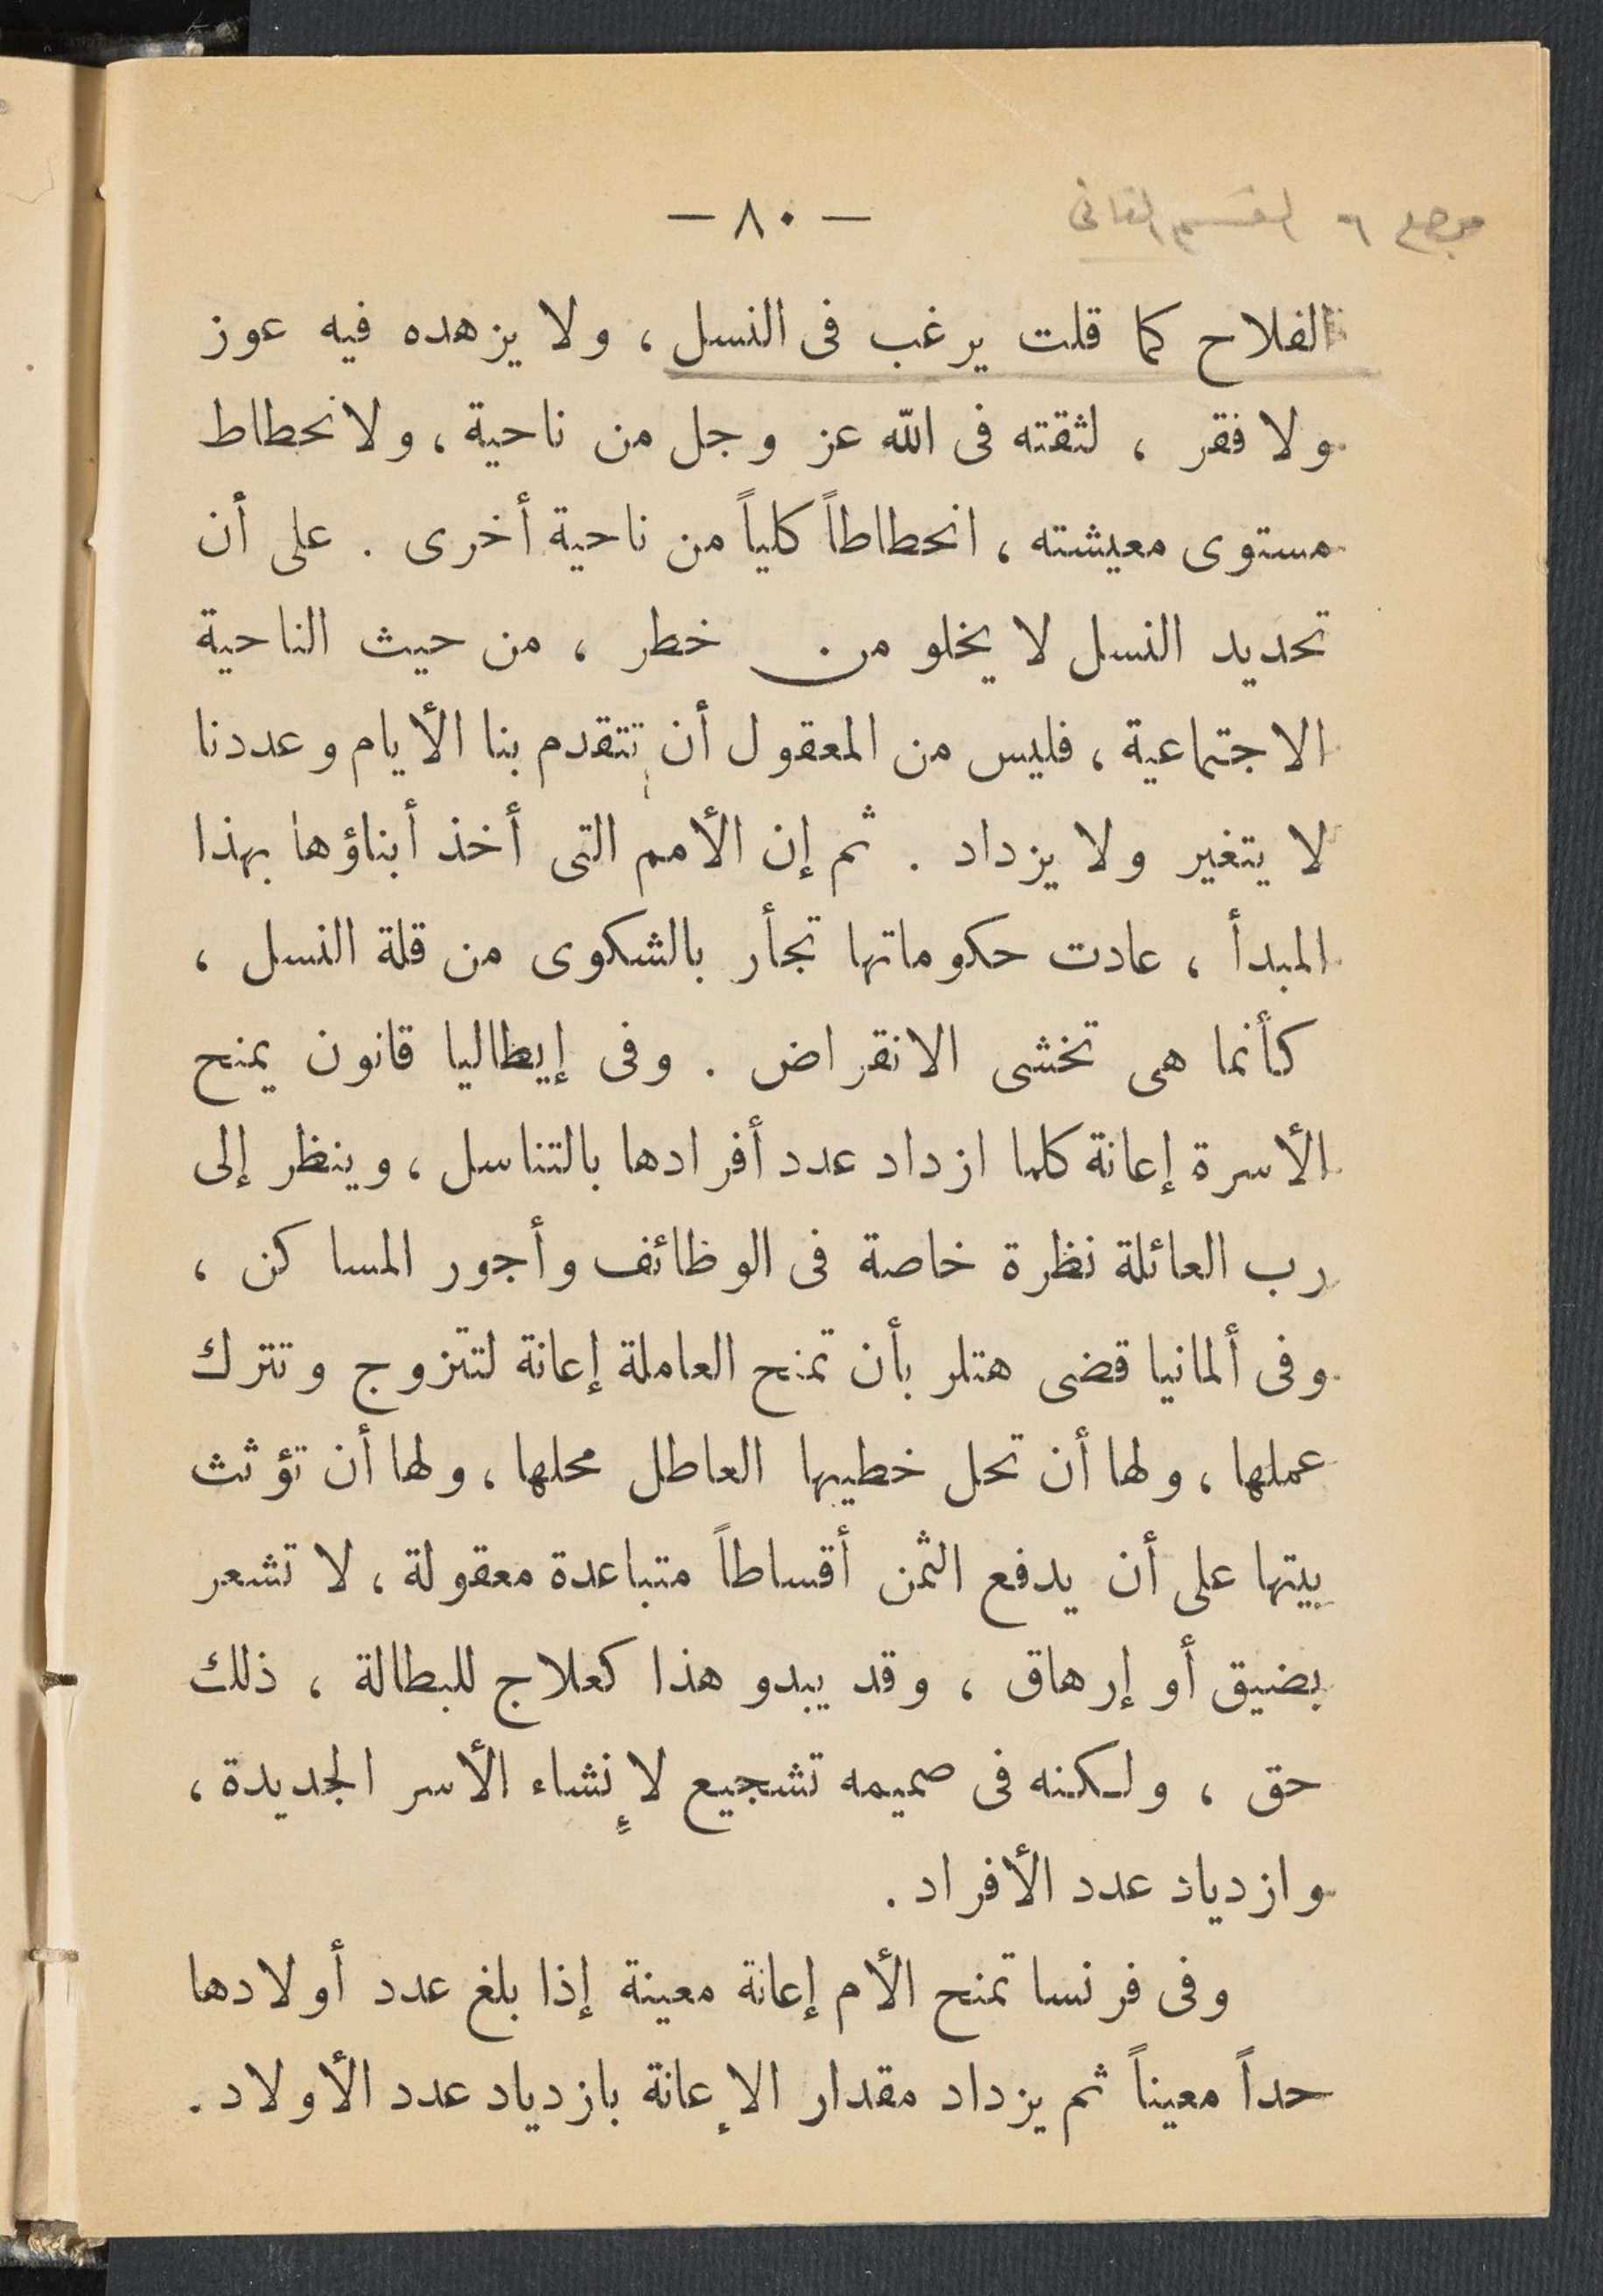 — ٨٠ —
٦ القسم الثانى
الفلاح كما قلت يرغب فى النسل ، ولا يزهده فيه عوز
ولا فقر ، لثقته فى الله عز وجل من ناحية ، ولانحطاط
مستوى معيشته ، انحطاطاً كلياً من ناحية أخرى . على أن
تحديد النسل لا يخلو من خطر ، من حيث الناحية
الاجتماعية ، فليس من المعقول أن تتقدم بنا الأيام وعددنا
لا يتغير ولا يزداد . ثم إن الأمم التى أخذ أبناؤها بهذا
المبدأ ، عادت حكوماتها تجأر بالشكوى من قلة النسل ،
كأنما هى تخشى الانقراض . وفى إيطاليا قانون يمنح
الأسرة إعانة كلما ازداد عدد أفرادها بالتناسل ، وينظر إلى
رب العائلة نظرة خاصة فى الوظائف وأجور المساكن ،
وفى ألمانيا قضى هتلر بأن تمنح العاملة إعانة لتتزوج وتترك
عملها ، ولها أن تحل خطيبها العاطل محلها ، ولها أن تؤثث
بيتها على أن يدفع الثمن أقساطاً متباعدة معقولة ، لا تشعر
بضيق أو إرهاق ، وقد يبدو هذا كعلاج للبطالة ، ذلك
حق ، ولكنه فى صميمه تشجيع لإنشاء الأسر الجديدة ،
وازدياد عدد الأفراد .
وفى فرنسا تمنح الأم إعانة معينة إذا بلغ عدد أولادها
حداً معيناً ثم يزداد مقدار الإعانة بازدياد عدد الأولاد .